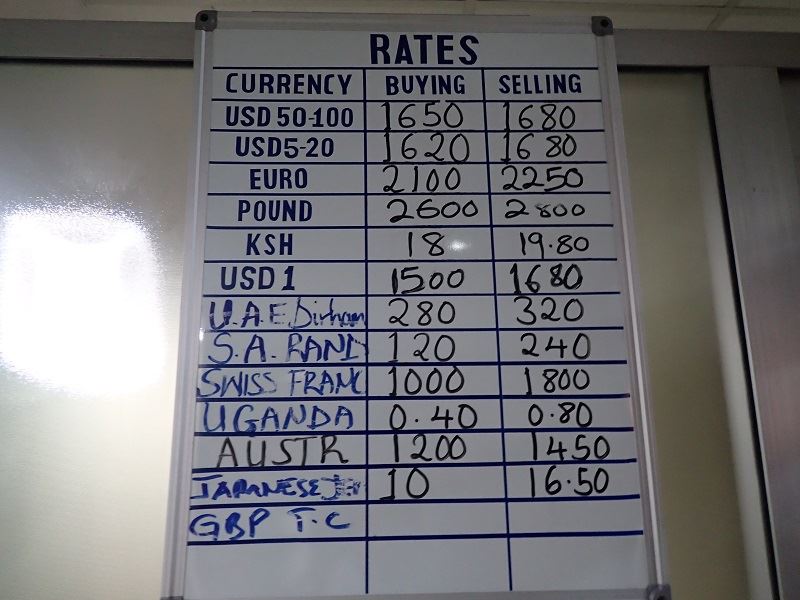 RATES
CURRENCY BUYING SELLING
USD 50-100 1650 1680
USD5-20 1620 1680
EURO 2100 2250
POUND 2600 2800
KSH 18 19.80
USD 1 1500 1680
U.A.E. Dirham 280 320
S.A. RAND 120 240
SWISS FRANC 1000 1800
UGANDA 0.40 0.80
AUSTR 1200 1450
JAPANESE 10 16.50
GBP T.C